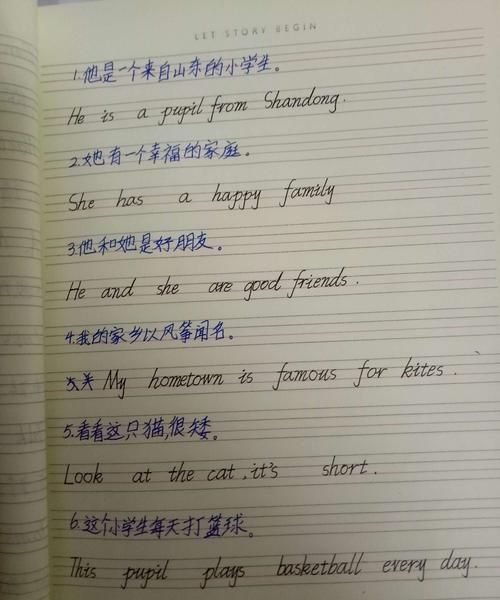 LET STORY BEGIN
1.他是一个来自山东的小学生。
He is a pupil from Shandong.
2.她有一个幸福的家庭。
She has a happy family
3.他和她是好朋友。
He and she are good friends.
4.我的家乡以风筝闻名。
My hometown is famous for kites.
5.看看这只猫,很矮。
Look at the cat, it's short.
6.这个小学生每天打篮球。
This pupil plays basketball every day.